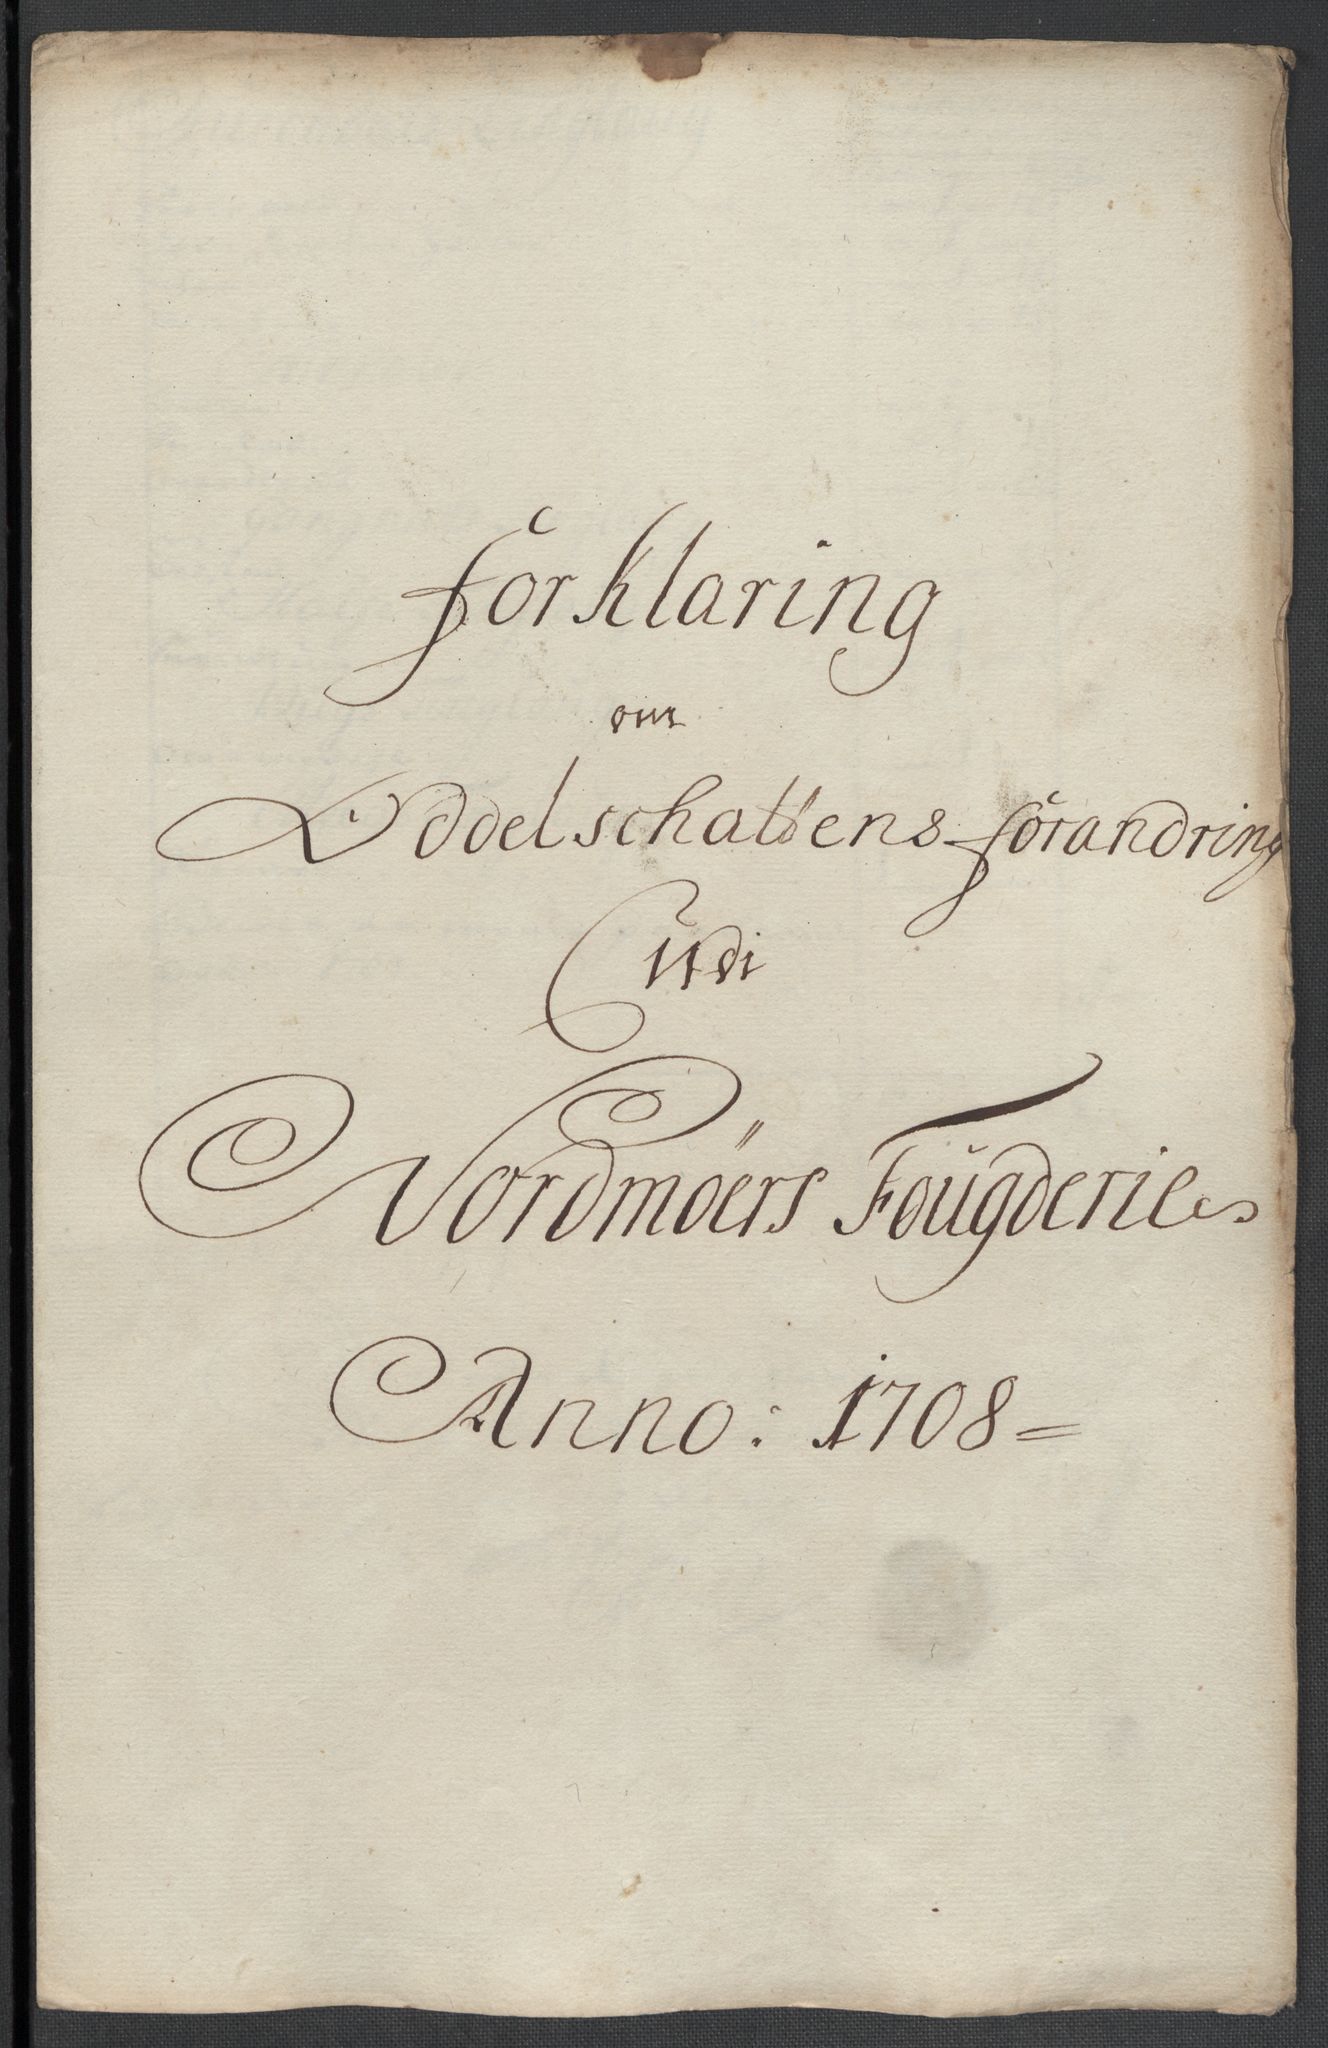 forklaring
om
Oddelschattens forandring
Udi
Nordmöers Foŭgderie
Anno: 1708=